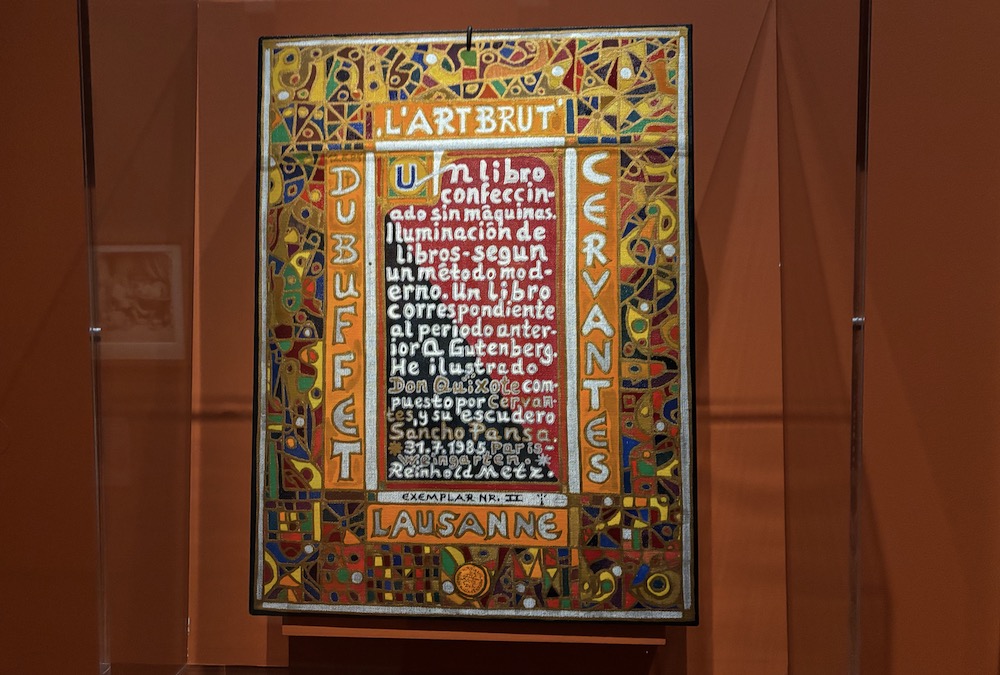 'L'ART BRUT'
DUBUFFET
CERVANTES
Un libro
confeccin-
ado sin mâquinas.
Iluminación de
libros-segun
un método mod-
erno. Un libro
correspondiente
al período anter-
ior a Gutenberg.
He ilustrado
Don Quixote com-
puesto por Cervan-
tes, y su escudero
Sancho Pansa.
*31.7.1985 Paris-
Weingarten.*
Reinhold Metz.
EXEMPLAR NR. II
LAUSANNE